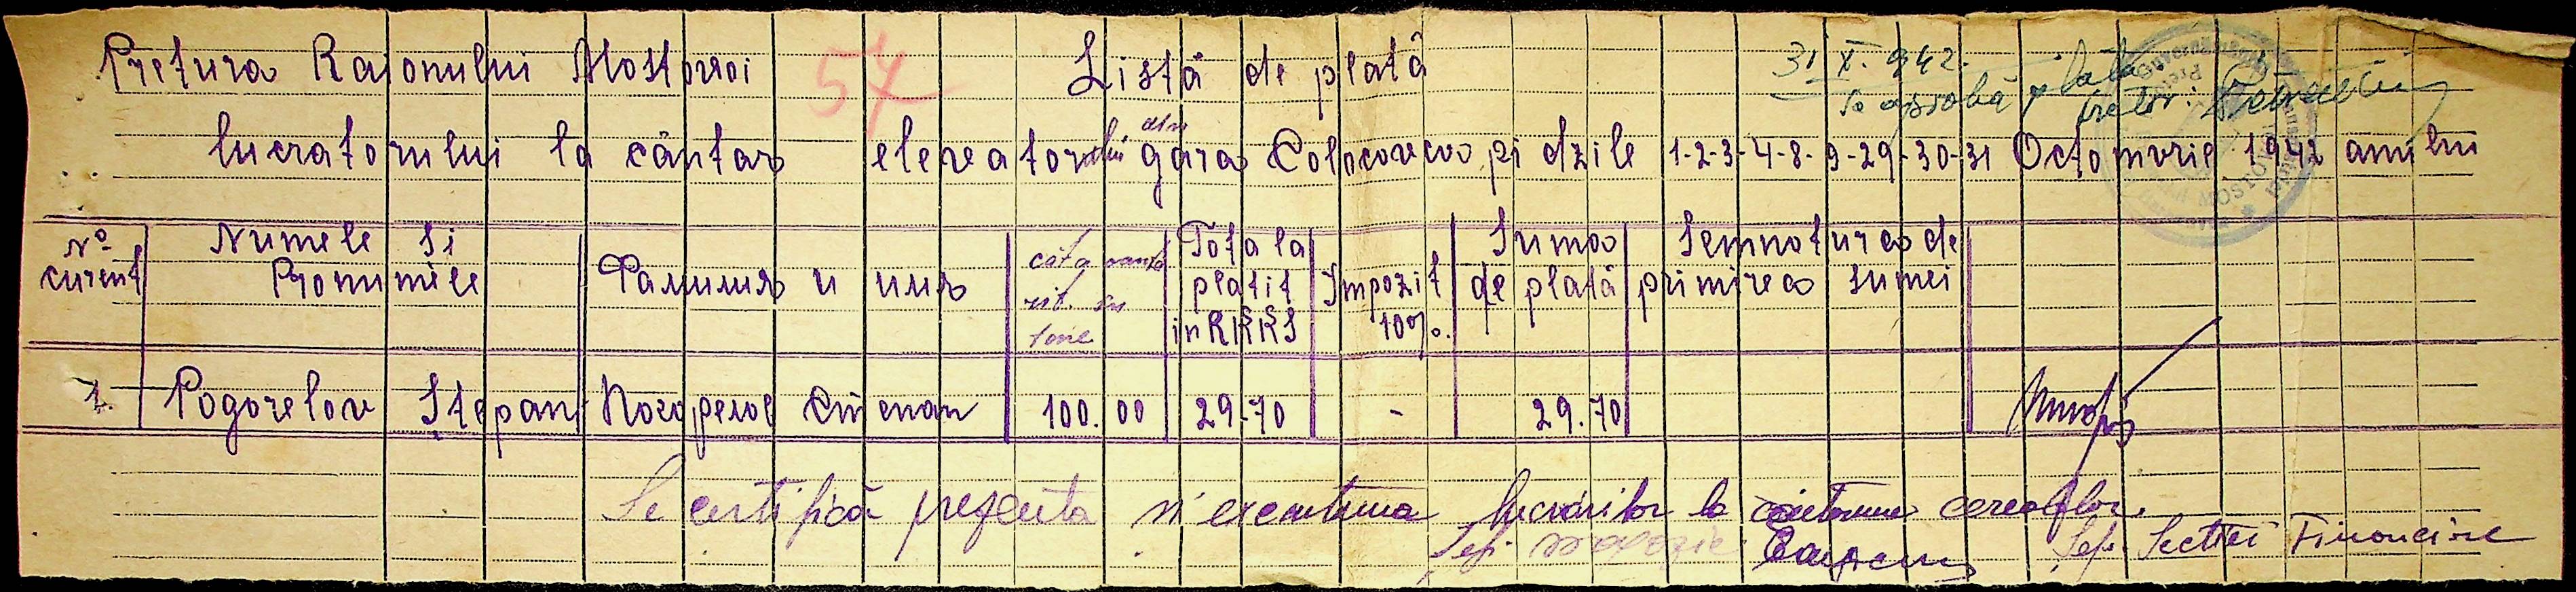 Pretura Raionului Mostovoi
57
Listă de plată
31 X. 942.
Se aprobă plata
Pretor:
lucratorului la cântar elevatorului din gara Colocovca pi dzile 1-2-3-4-8-9-29-30-31 Octomvrie 1942 anului
No curent
Numele Si Pronumile
Фамилия и имя
Totala platit in RKKS
Impozit 10%.
Suma de plată
Semnatura de primirea sumei
1. Pogorelov Stepan Погорелов Степан 100.00 29.70 - 29.70
Se certifică prezenta si executarea lucrărilor la cântarirea cerealelor.
Sef.
Sef. Sectiei Financiare